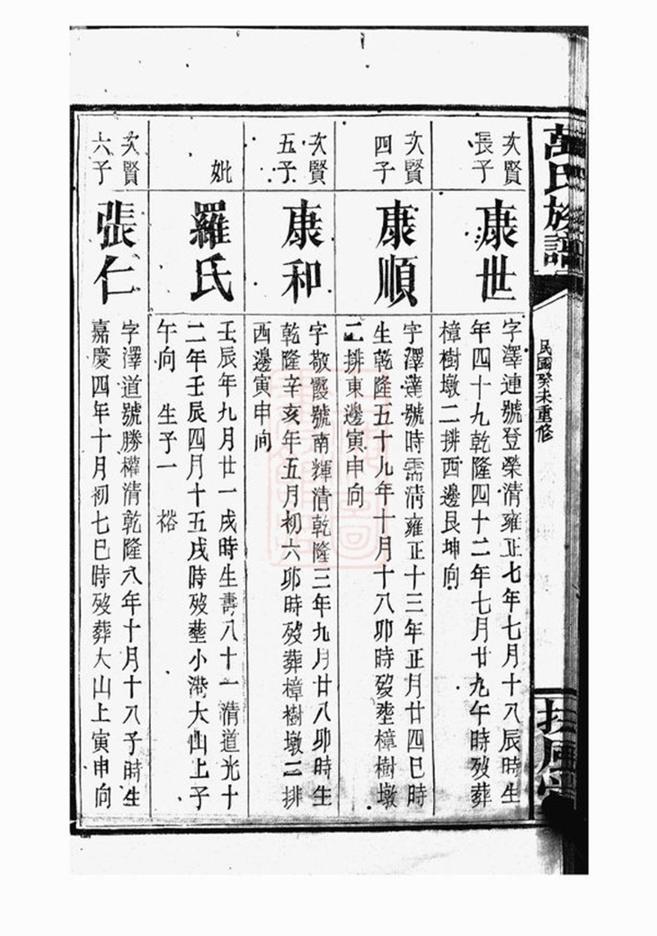 萬氏族譜
民國癸未重修
次賢
長子
康世
字澤連號登榮清雍正七年七月十八辰時生
年四十九乾隆四十二年七月廿九午時歿葬
樟樹墩二排西邊艮坤向
次賢
四子
康順
字澤蓬號時需清雍正十三年正月廿四巳時
生乾隆五十九年十月十八卯時歿塟樟樹墩
二排東邊寅申向
次賢
五子
康和
字敬霞號南輝清乾隆三年九月廿八卯時生
乾隆辛亥年五月初六卯時歿葬樟樹墩二排
西邊寅申向
妣
羅氏
壬辰年九月廿一戌時生壽八十一清道光十
二年壬辰四月十五戌時歿塟小港大山上子
午向 生子一 裕
次賢
六子
張仁
字澤道號勝權清乾隆八年十月十八子時生
嘉慶四年十月初七巳時歿葬大山上寅申向